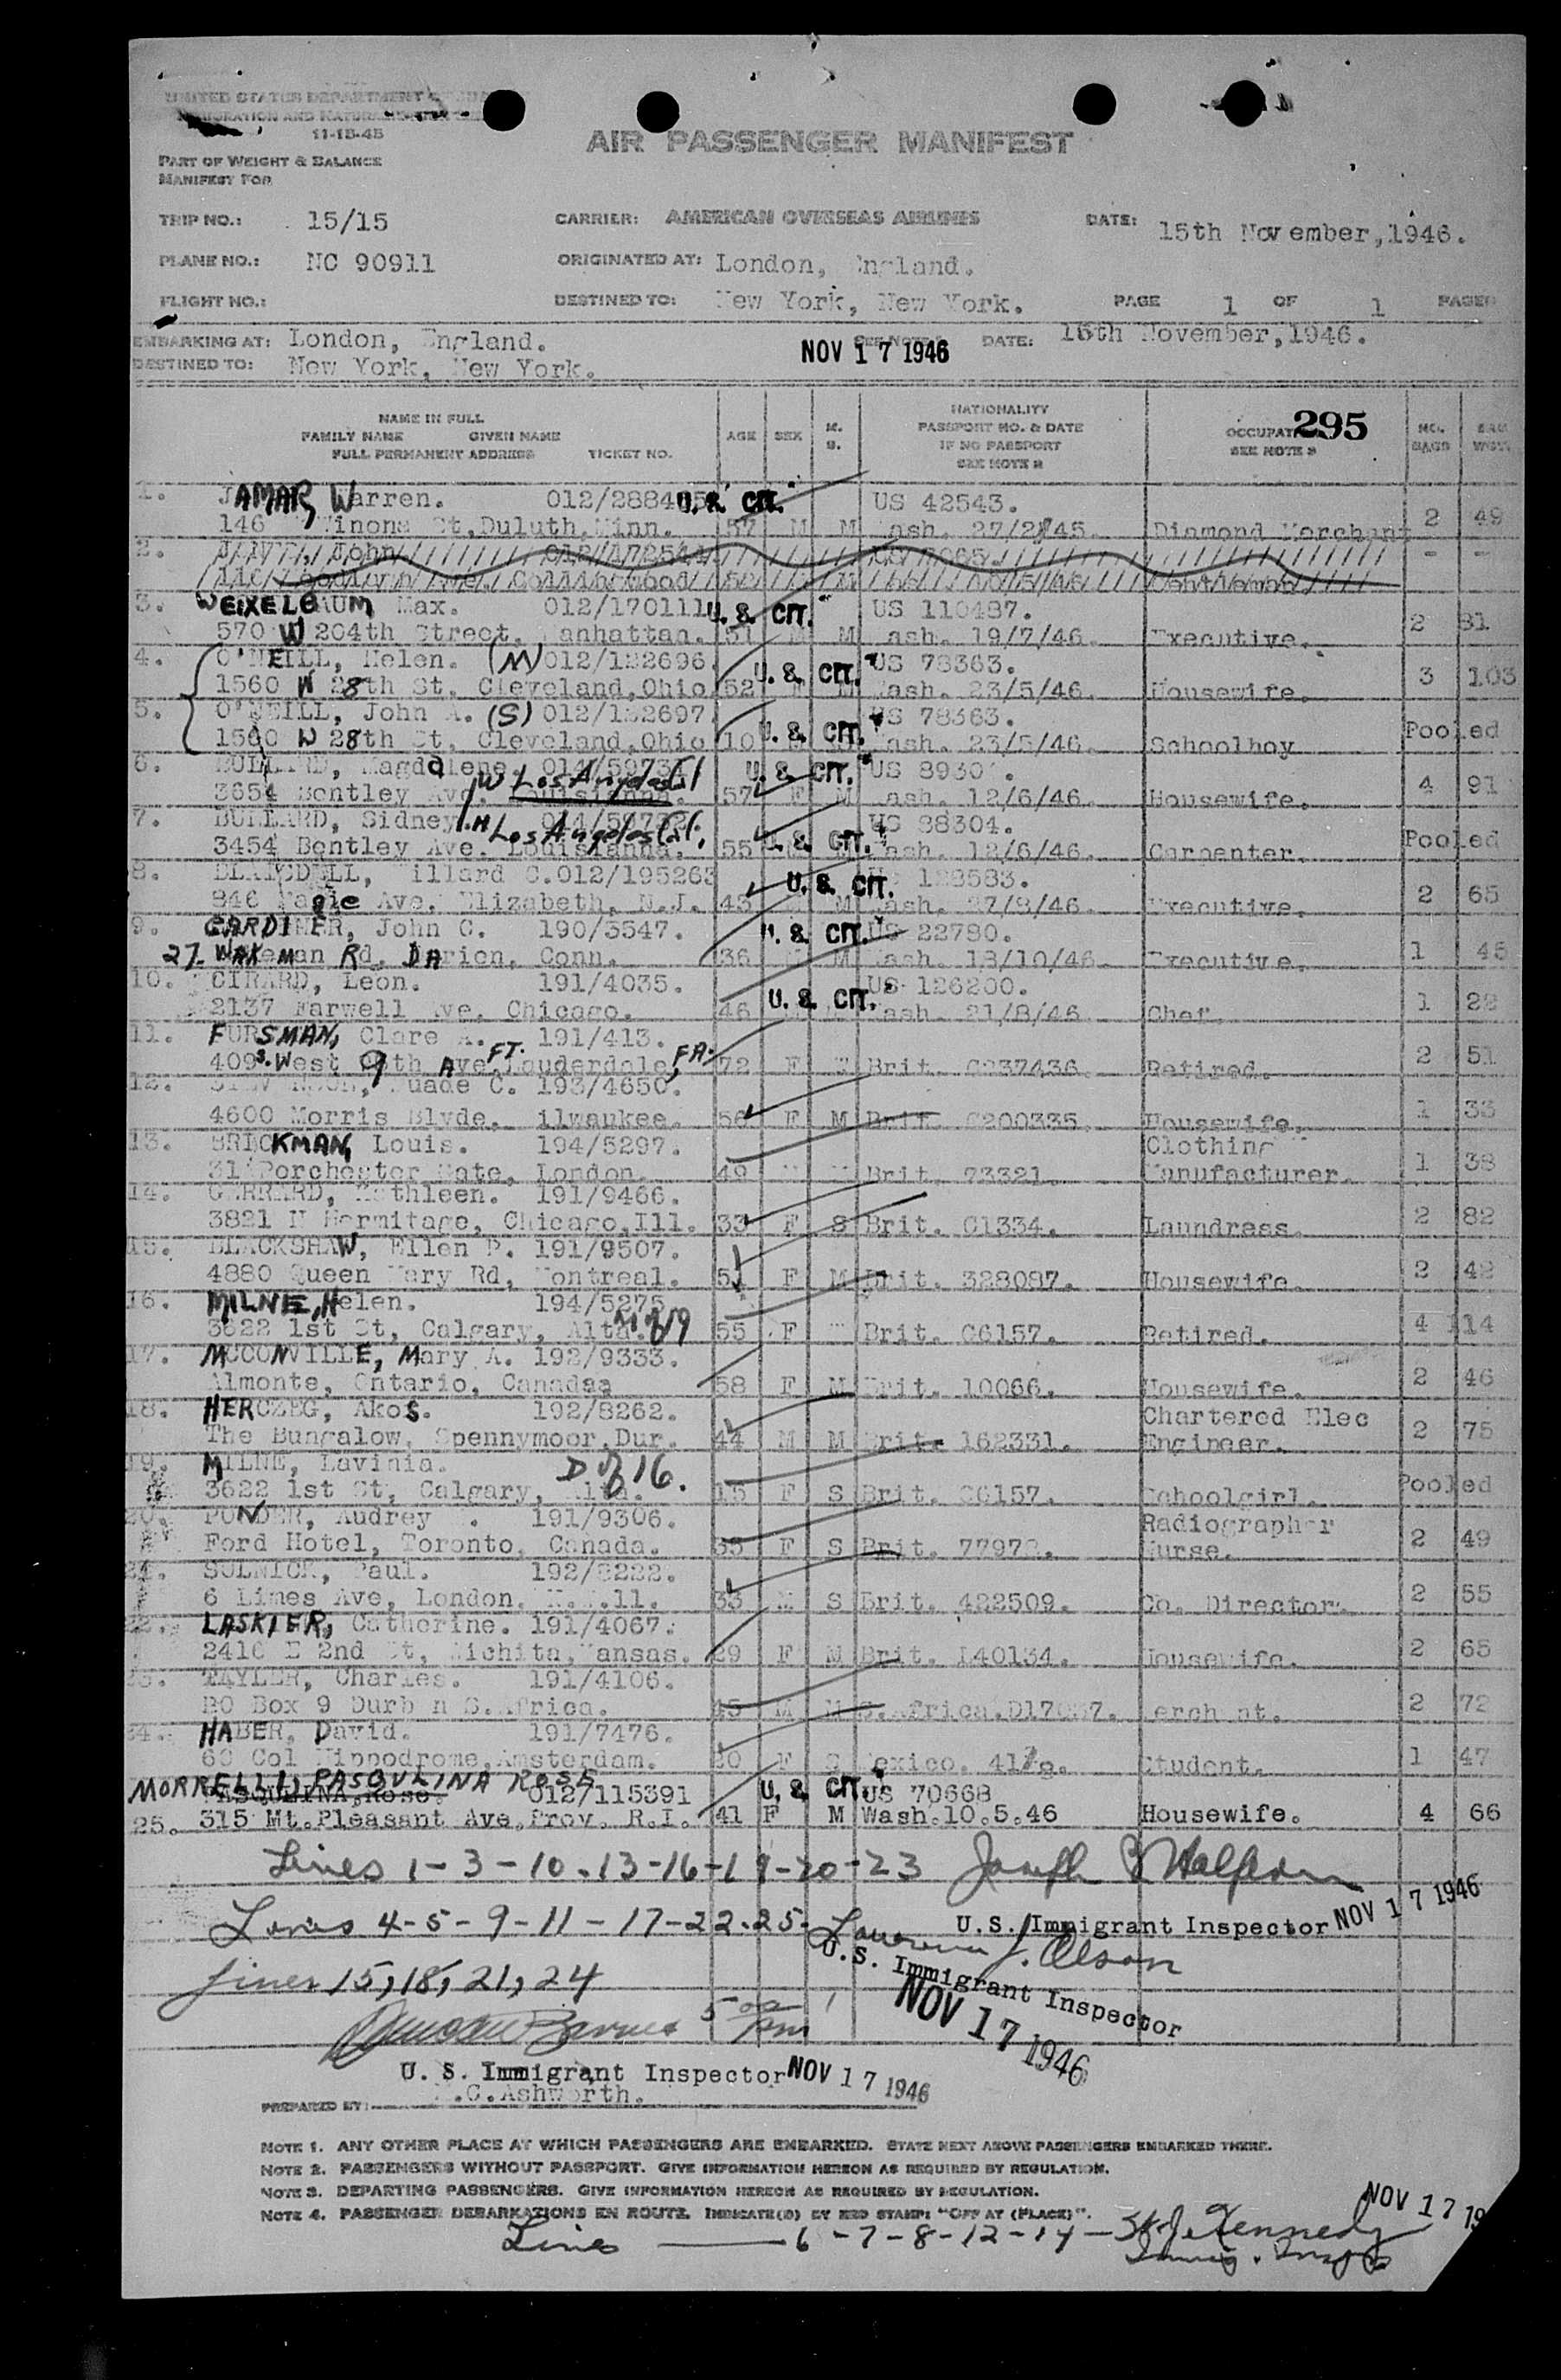 UNITED STATES DEPARTMENT OF
IMMIGRATION AND NATURALIZATION
11-15-45
AIR PASSENGER MANIFEST
PART OF WEIGHT & BALANCE
MANIFEST FOR
TRIP NO.: 15/15 CARRIER: AMERICAN OVERSEAS AIRLINES DATE: 15th November,1946.
PLANE NO.: NC 90911 ORIGINATED AT: London, England.
FLIGHT NO.: DESTINED TO: New York, New York. PAGE 1 OF 1 PAGES
EMBARKING AT: London, England. NOV 17 1946 SEE NOTE DATE: 15th November,1946.
DESTINED TO: New York, New York.
NAME IN FULL AGE SEX M. S. NATIONALITY OCCUPATION 295 NO. BAGS BAG WGT.
FAMILY NAME GIVEN NAME PASSPORT NO. & DATE SEE NOTE 3
FULL PERMANENT ADDRESS TICKET NO. IF NO PASSPORT
SEE NOTE 2
1. JAMAR, Warren. U.S. CIT. US 42543.
146 Winona St,Duluth,Minn. 57 M M Wash. 27/2/45. Diamond Merchant 2 49
2. John - -
3. WEIXELBAUM Max. 012/170111 U.S. CIT. US 110487.
570 W 204th Street, Manhattan. 51 M M Wash. 19/7/46. Executive. 2 81
4. O'NEILL, Helen. (M) 012/122696. U.S. CIT. US 78363.
1560 W 28th St, Cleveland,Ohio 52 F M Wash. 23/5/46. Housewife. 3 103
5. O'NEILL, John A. (S) 012/122697. U.S. CIT. US 78363.
1560 W 28th St, Cleveland,Ohio 10 Wash. 23/5/46. Schoolboy Pooled
6. BULLARD, Magdalene. U.S. CIT. US
3654 Bentley Ave, W Los Angeles Cal 57 F M Wash. 12/6/46. Housewife. 4 91
7. BULLARD, Sidney H. US 88304.
3454 Bentley Ave. Louisianna. Los Angeles Cal. 55 U.S. CIT. Wash. 12/6/46. Carpenter. Pooled
8. BLAISDELL, Willard C.012/195263 U.S. CIT. US 128583.
846 Magie Ave. Elizabeth, N.J. 45 M Wash. 27/8/46. Executive. 2 65
9. GARDINER, John C. 190/3547. U.S. CIT. US 22780.
27 Wakeman Rd, Darien, Conn. 36 M M Wash. 18/10/46. Executive. 1 45
10. GIRARD, Leon. 191/4035. U.S. CIT. US 126200.
2137 Farwell Ave, Chicago. 46 Wash. 21/8/46. Chef. 1 22
11. FURSMAN, Clare A. 191/413.
409 S. West 9th Ave FT. Lauderdale, FA. 72 F Brit. C237436. Retired. 2 51
12. Quade C. 193/4650.
4600 Morris Blvde, Milwaukee. 56 F M Brit. C200335. Housewife. 1 33
13. BRICKMAN, Louis. 194/5297. Clothing
31 Porchester Gate, London. 49 Brit. 73321. Manufacturer. 1 38
14. GERRARD, Kathleen. 191/9466.
3821 N Hermitage, Chicago,Ill. 33 F S Brit. C1334. Laundress. 2 82
15. BLACKSHAW, Ellen P. 191/9507.
4880 Queen Mary Rd, Montreal. 51 F M Brit. 328087. Housewife. 2 42
16. MILNE, Helen. 194/5275
3622 1st St, Calgary, Alta. M of 19 55 F Brit. C6157. Retired. 4 114
17. MCCONVILLE, Mary A. 192/9333.
Almonte, Ontario, Canada 58 F M Brit. 10066. Housewife. 2 46
18. HERCZEG, Akos. 192/8262. Chartered Elec
The Bungalow, Spennymoor,Dur. 44 M M Brit. 162331. Engineer. 2 75
19. MILNE, Lavinia. D of 16.
3622 1st St, Calgary, Alta. 15 F S Brit. C6157. Schoolgirl. Pooled
20. PONDER, Audrey 191/9306. Radiographer
Ford Hotel, Toronto, Canada. 35 F S Brit. Nurse. 2 49
21. SOLNICK, Paul.
6 Limes Ave, London. N.W.11. 33 M S Brit. 422509. Co. Director. 2 55
22. LASKIER, Catherine. 191/4067.
2416 E 2nd St, Wichita, Kansas. 29 F M Brit. L40134. Housewife. 2 65
23. TAYLER, Charles. 191/4106.
PO Box 9 Durban S.Africa. 45 M M S.Africa. Merchant. 2 72
24. HABER, David. 191/7476.
Col Hippodrome,Amsterdam. 20 F S Mexico. Student. 1 47
MORRELLI, PASQULINA ROSE
PASQULINA,Rose. 012/115391 U.S. CIT. US 70668
25. 315 Mt.Pleasant Ave,Prov. R.I. 41 F M Wash.10.5.46 Housewife. 4 66
Lines 1-3-10-13-16-19-20-23 Joseph
U.S. Immigrant Inspector NOV 17 1946
Lines 4-5-9-11-17-22-25- J. Olson
U.S. Immigrant Inspector
NOV 17 1946
Lines 15, 18, 21, 24
Barnes 5 00 pm
U. S. Immigrant Inspector NOV 17 1946
PREPARED BY: .C.Ashworth.
NOTE 1. ANY OTHER PLACE AT WHICH PASSENGERS ARE EMBARKED. STATE NEXT ABOVE PASSENGERS EMBARKED THERE.
NOTE 2. PASSENGERS WITHOUT PASSPORT. GIVE INFORMATION HEREON AS REQUIRED BY REGULATION.
NOTE 3. DEPARTING PASSENGERS. GIVE INFORMATION HEREON AS REQUIRED BY REGULATION.
NOTE 4. PASSENGER DEBARKATIONS EN ROUTE. INDICATE(D) BY RED STAMP: "OFF AT (PLACE)".
NOV 17 19
Lines 6-7-8-12-14- Kennedy
Immig. Insp.